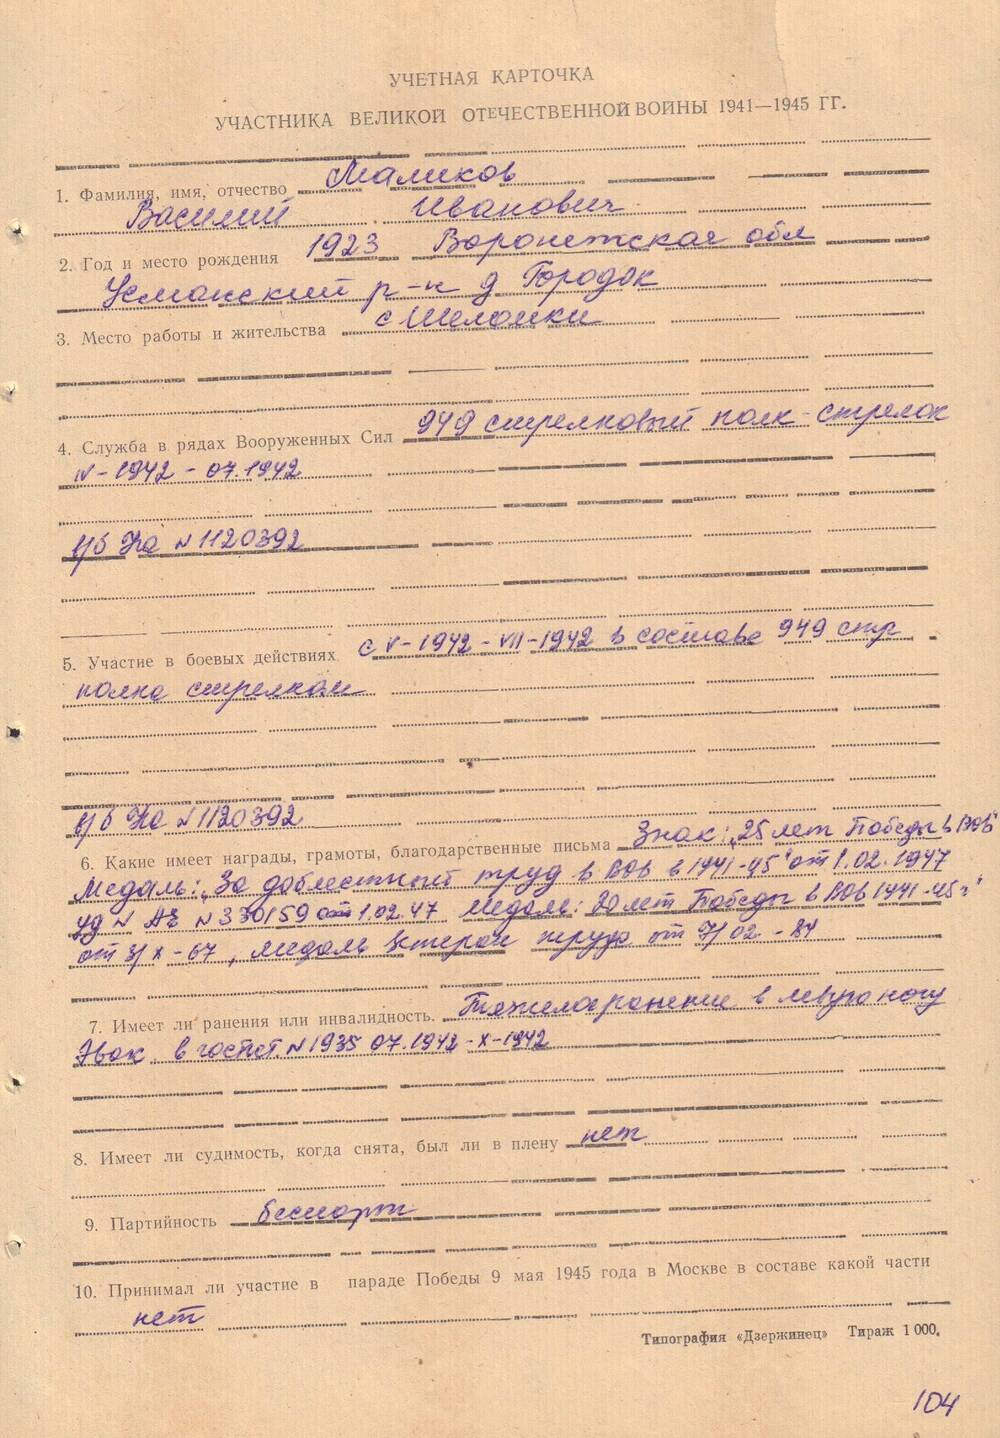 УЧЕТНАЯ КАРТОЧКА
УЧАСТНИКА ВЕЛИКОЙ ОТЕЧЕСТВЕННОЙ ВОЙНЫ 1941—1945 ГГ.
1. Фамилия, имя, отчество Маликов
Василий Иванович
2. Год и место рождения 1923 Воронежская обл
Усманский р-н д Городок
3. Место работы и жительства с Шеломки
4. Служба в рядах Вооруженных Сил 949 стрелковый полк - стрелок
IV-1942 - 07.1942
в/б На № 1120392
5. Участие в боевых действиях с V-1942 - VII-1942 в составе 949 стр
полка стрелком
в/б На № 1120392
6. Какие имеет награды, грамоты, благодарственные письма Знак: „25 лет Победы в ВОВ"
Медаль: „За доблестный труд в ВОВ в 1941-45" от 1.02.1947
уд № АЕ № 330159 от 1.02.47 медаль: 20 лет Победы в ВОВ 1941-45 г"
от 3/X-67, медаль Ветеран труда от 7/02-84
7. Имеет ли ранения или инвалидность. Тяжелое ранение в левую ногу
Эвак. в госпит. № 1935 07.1942 - X-1942
8. Имеет ли судимость, когда снята, был ли в плену нет
9. Партийность беспарт
10. Принимал ли участие в параде Победы 9 мая 1945 года в Москве в составе какой части
нет
Типография «Дзержинец» Тираж 1 000.
104